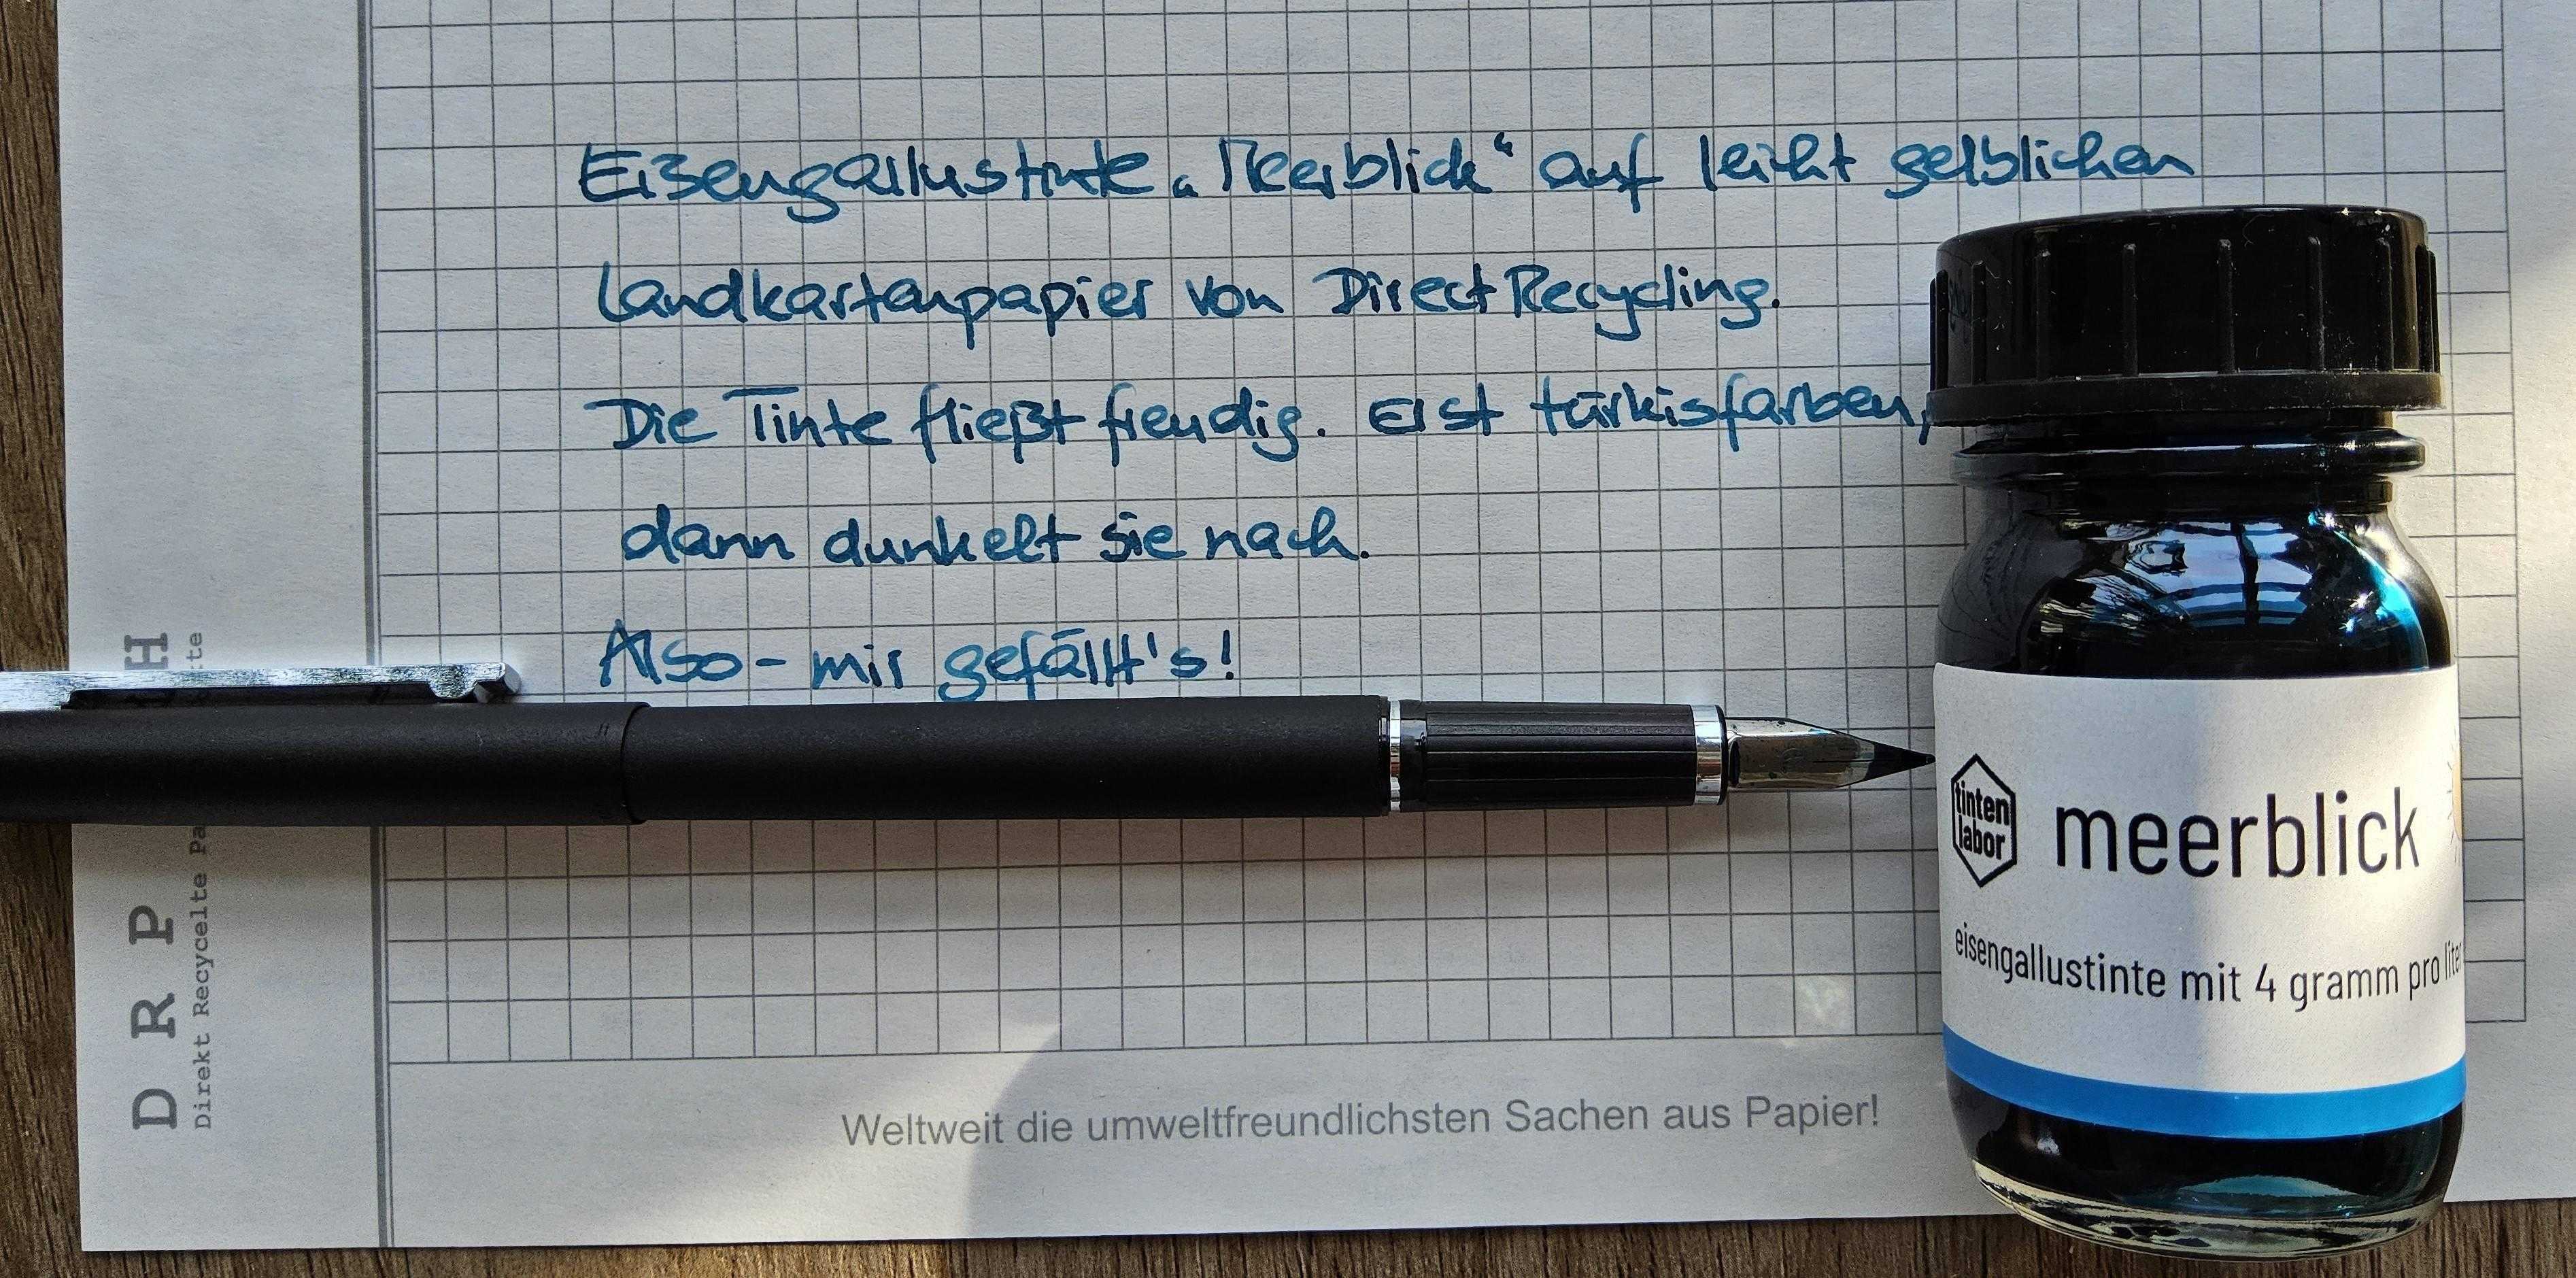 Eisengallustinte „Meerblick“ auf leicht gelblichen
Landkartenpapier von DirectRecycling.
Die Tinte fließt freudig. Erst türkisfarben,
dann dunkelt sie nach.
Also - mir gefällt's!
tinten
labor
meerblick
eisengallustinte mit 4 gramm pro liter
D R P
H
Direkt Recycelte
Weltweit die umweltfreundlichsten Sachen aus Papier!